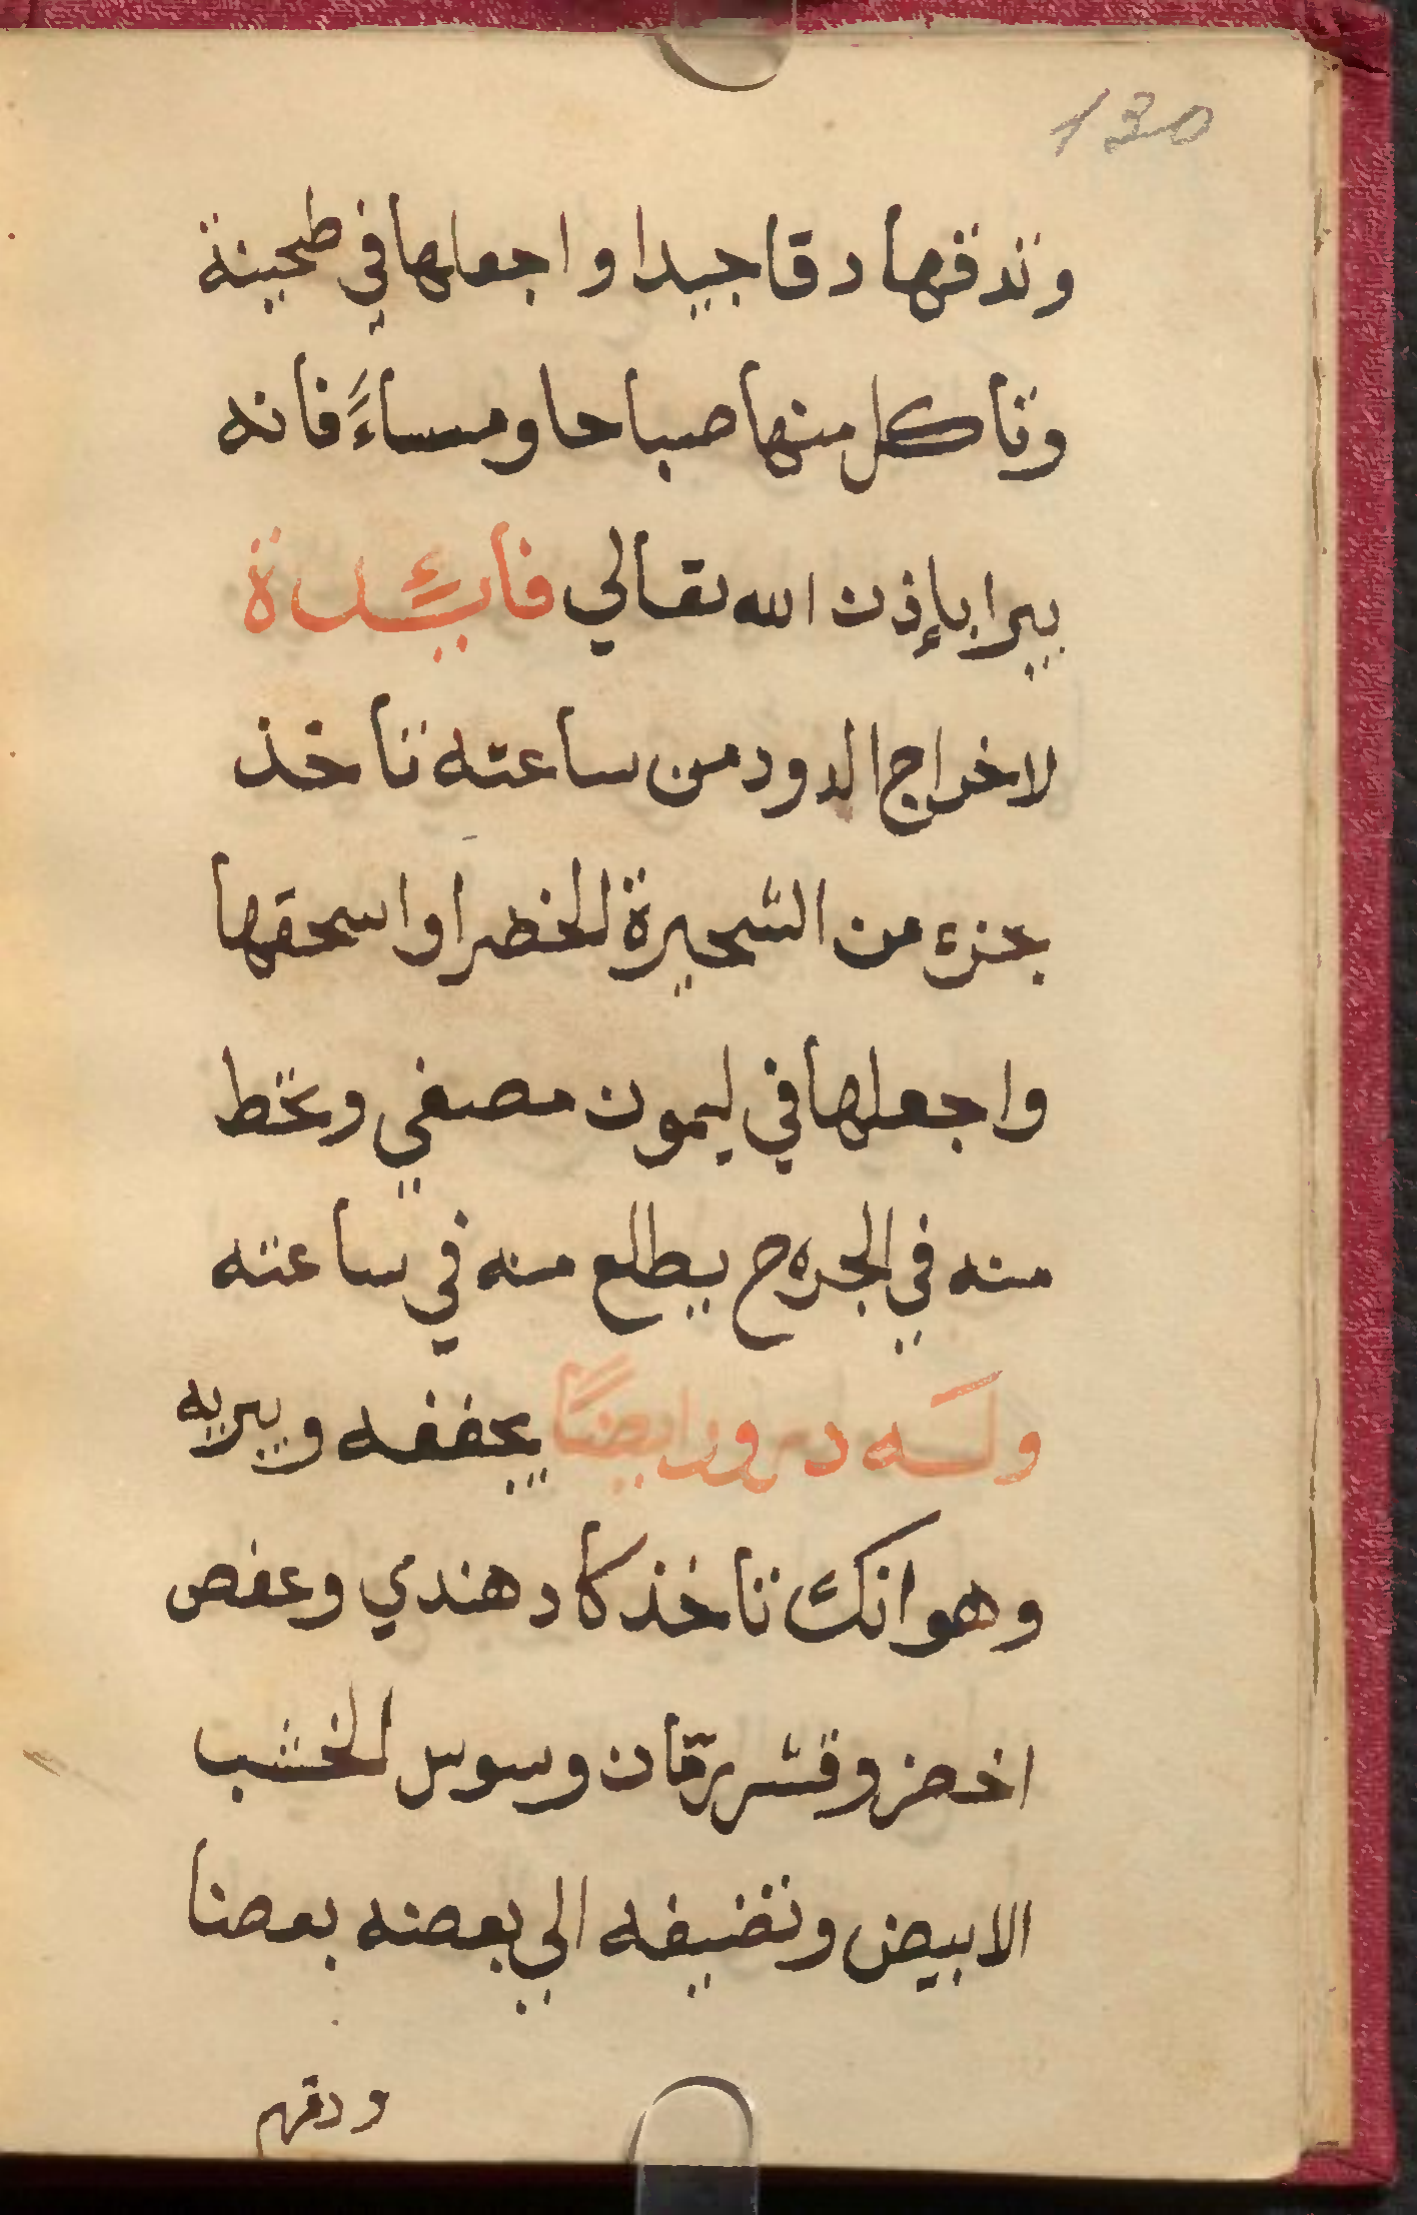 130
وتدقها دقا جيدا واجعلها في طحينة
وتاكل منها صباحا ومساءً فانه
يبرا بإذن الله تعالي فايئدة
لاخراج الدود من ساعته تاخذ
جزء من الشجيرة الخضرا واسحقها
واجعلها في ليمون مصفي وتحط
منه في الجرح يطلع منه في ساعته
وله درور ايضًا يجففه ويبريه
وهو انك تاخذ كاد هندي وعفص
اخضر وقشر رمّان وسوس الخشب
الابيض وتضيفه الي بعضه بعضا
ودقهم